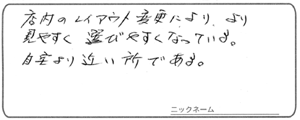 店内のレイアウト変更により、より
見やすく 選びやすくなっている。
自宅より近い所である。
ニックネーム